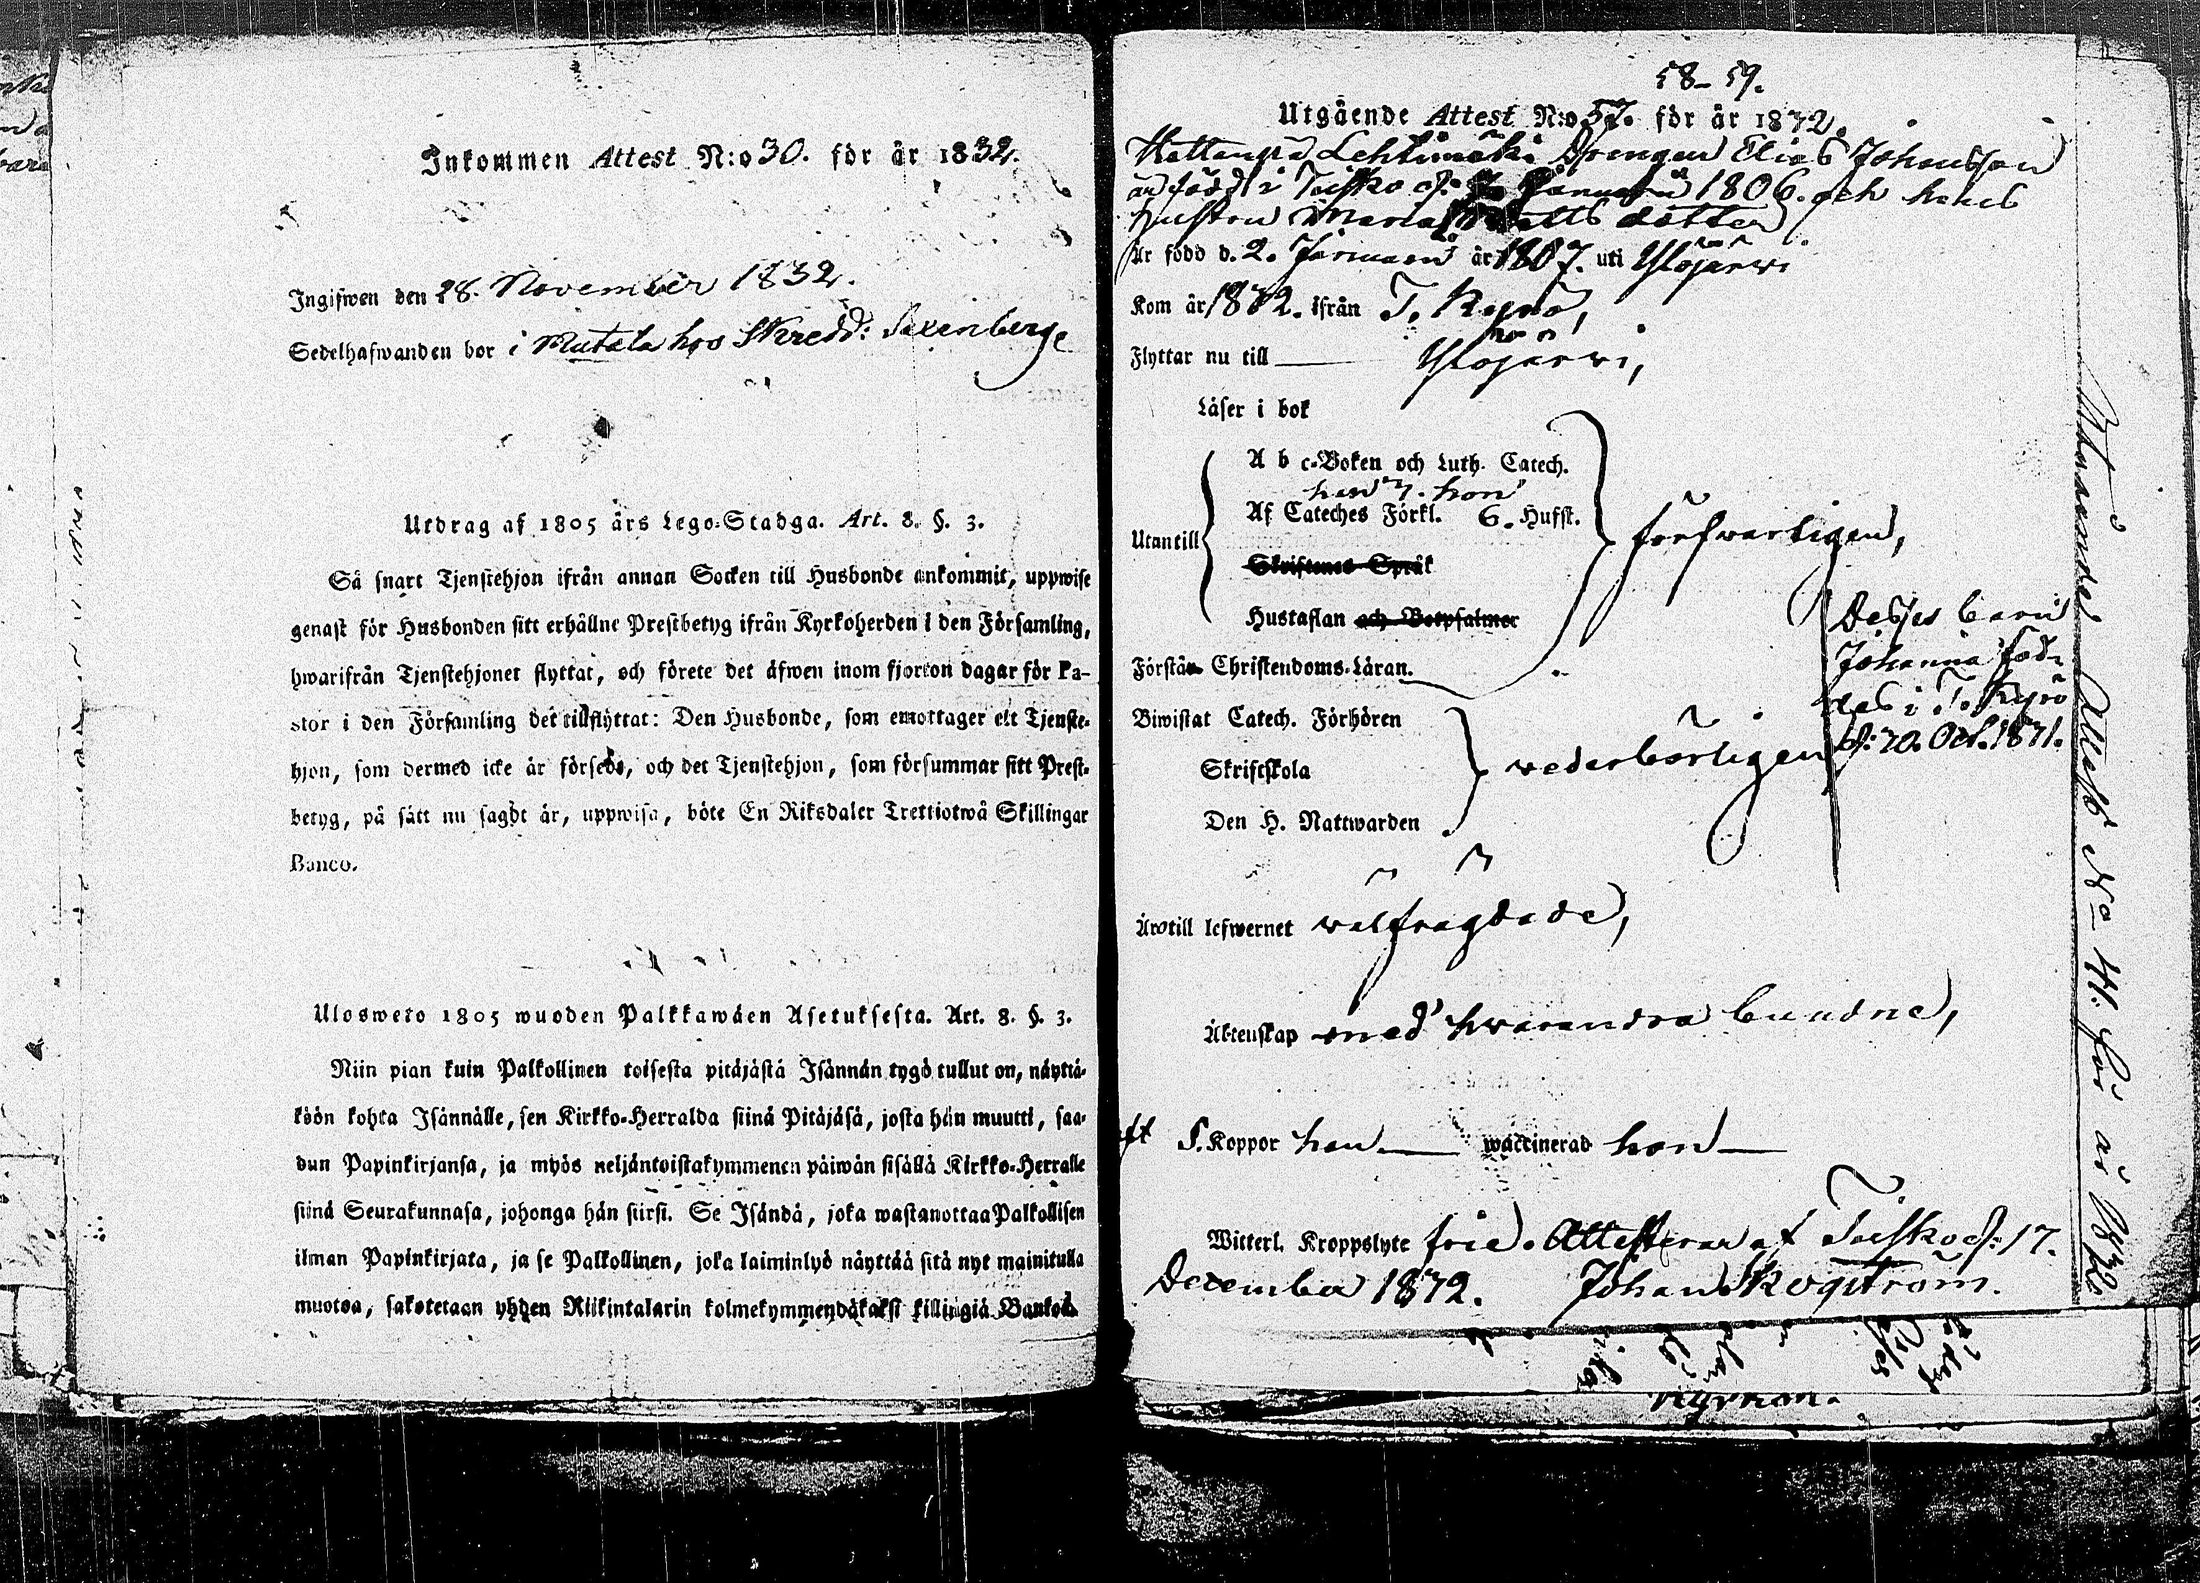 Inkommen Attest N:o 30. för år 1832.
Ingifwen den 28. November 1832.
Sedelhafwanden bor i Mutala hos Skredd: Saxenberg
Utdrag af 1805 års Lego-Stadga. Art. 8. §. 3.
Så snart Tjenstehjon ifrån annan Socken till Husbonde ankommit, uppwise
genast för Husbonden sitt erhållne Prestbetyg ifrån Kyrkoherden i den Församling,
hwarifrån Tjenstehjonet flyttat, och förete det äfwen inom fjorton dagar för Pa-
stor i den Församling det tillflyttat: Den Husbonde, som emottager ett Tjenste-
hjon, som dermed icke är försedt, och det Tjenstehjon, som försummar sitt Prest-
betyg, på sätt nu sagdt är, uppwisa, böte En Riksdaler Trettiotwå Skillingar
Banco.
Ulosweto 1805 wuoden Palkkawäen Asetuksesta. Art. 8. §. 3.
Niin pian kuin Palkollinen toisesta pitäjästä Isännän tygö tullut on, näyttä-
köön kohta Isännälle, sen Kirkko-Herralda siinä Pitäjäsä, josta hän muutti, saa-
dun Papinkirjansa, ja myös neljäntoistakymmenen päiwän sisällä Kirkko-Herralle
siinä Seurakunnasa, johonga hän siirsi. Se Isändä, joka wastanottaa Palkollisen
ilman Papinkirjata, ja se Palkollinen, joka laiminlyö näyttää sitä nyt mainitulla
muotoa, sakotetaan yhden Riikintalarin kolmekymmendäkaksi killingiä Bankos.
58-59.
Utgående Attest N:o 57. för år 1832.
Lehtimäki Drengen Elias Johansson
är född i Teisko d: Januarii 1806. och hans
hustru Maria Matts dotter
Är född d. 2. Januarii år 1807. uti Ylöjärwi
Kom år 1832. ifrån T. Kyrö,
Flyttar nu till Ylöjärwi,
Läser i bok
A b c-Boken och Luth. Catech.
han 7. hon
Utantill Af Cateches Förkl. 6. Hufst. förswarligen,
Skriftenes Språk
Hustaflan och Botpsalmer
Förstå Christendoms-Läran.
Biwistat Catech. Förhören
Skriftskola wederbörligen
Den H. Nattwarden
Desses barn
Johanna föd-
des i T. Kyrö
d: 20. Oct. 1831.
Är till lefwernet wälfrägdade,
Äktenskap med hwarandra bundne,
Koppor han waccinerad hon
Witterl. Kroppslyte frie. Attesterar af Teisko d: 17.
December 1832. Johan Skogström.
Attest N:o 41. för år 1832.